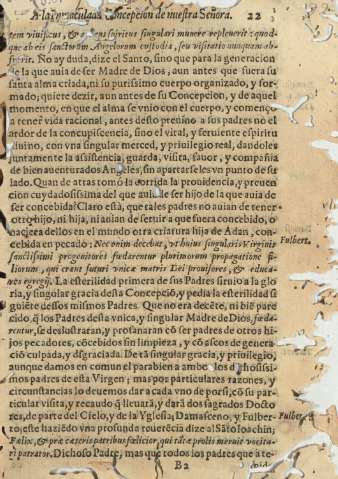 A la inmaculada Concepcion de nuestra Señora. 22
tem viuificus, & ardens spiritus singulari munere repleuerit: quod-
que ab eis sanctorum Angelorum custodia, seu visitatio nunquam ab-
fuerit. No ay duda, dize el Santo, sino que para la generacion
de la que auia de ser Madre de Dios, aun antes que fuera su
santa alma criada, ni su purissimo cuerpo organizado, y for-
mado; quiere dezir, aun antes de su Concepcion, y de aquel
momento, en que el alma se vnio con el cuerpo, y començò
a tener vida racional, antes desto preuino a sus padres no el
ardor de la concupiscencia, sino el vital, y feruiente espiritu
diuino, con vna singular merced, y priuilegio real, dandoles
juntamente la assistencia, guarda, visita, fauor, y compañia
de bienauenturados Angeles, sin apartarseles vn punto de su
lado. Quan de atras tomò la corrida la prouidencia, y preuen
cion cuydadosissima del que auia de ser hijo de la que auia de
ser concebida? Claro està, que tales padres no auian de tener
otro hijo, ni hija, ni auian de seruir a que fuera concebido, o
naciera dellos en el mundo otra criatura hija de Adan, con-
cebida en pecado: Nec enim decebat, vt huius singularis Virginis
sanctissimi progenitores fœdarentur plurimorum propagatione fi-
liorum, qui erant futuri vnicæ matris Dei prouisores, & educa-
egregij. La esterilidad primera de sus Padres siruio a la glo
ria, y singular gracia desta Concepciō, y pedia la esterilidad si
guiẽte dessos mismos Padres. Que no era decẽte, ni biẽ pare
cido, q̃ los Padres desta vnica, y singular Madre de Dios, fœda-
rentur, se deslustraran, y profanaran cō ser padres de otros hi-
jos pecadores, cōcebidos sin limpieza, y cō ascos de genera-
ciō culpada, y desgraciada. De tā singular gracia, y priuilegio,
aunque damos en comun el parabien a ambos los dichosissi-
mos padres de esta Virgen; mas por particulares razones, y
circunstancias lo deuemos dar a cada vno de por si, cō su par-
ticular visita, y recaudo q̃ lleuarà, y darà dos sagrados Docto
res, de parte del Cielo, y de la Yglesia, Damasceno, y Fulber-
to; este haziēdo vna profunda reuerēcia dize al Sāto Ioachin;
Fælix, & præ cæteris patribus fœlicior, qui talē prolis meruit vocita-
ri parentem. Dichoso Padre, mas que todos los padres que a te-
B 2
Fulbert.
Fulber.